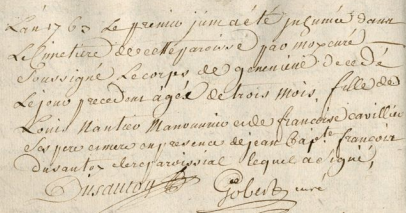 L'an 1763 Le premier juin a été inhumée dans
Le Cimetiere de cette paroisse par moy curé
soussigné Le corps de genevieve decedée
Le jour precedent âgée de trois mois, fille de
Louis manouvrier et de françoise
ses pere et mere en presence de jean bapte françois
Dusautoy clerc paroissial lequel a signé,
Dusautoy Gobert curé